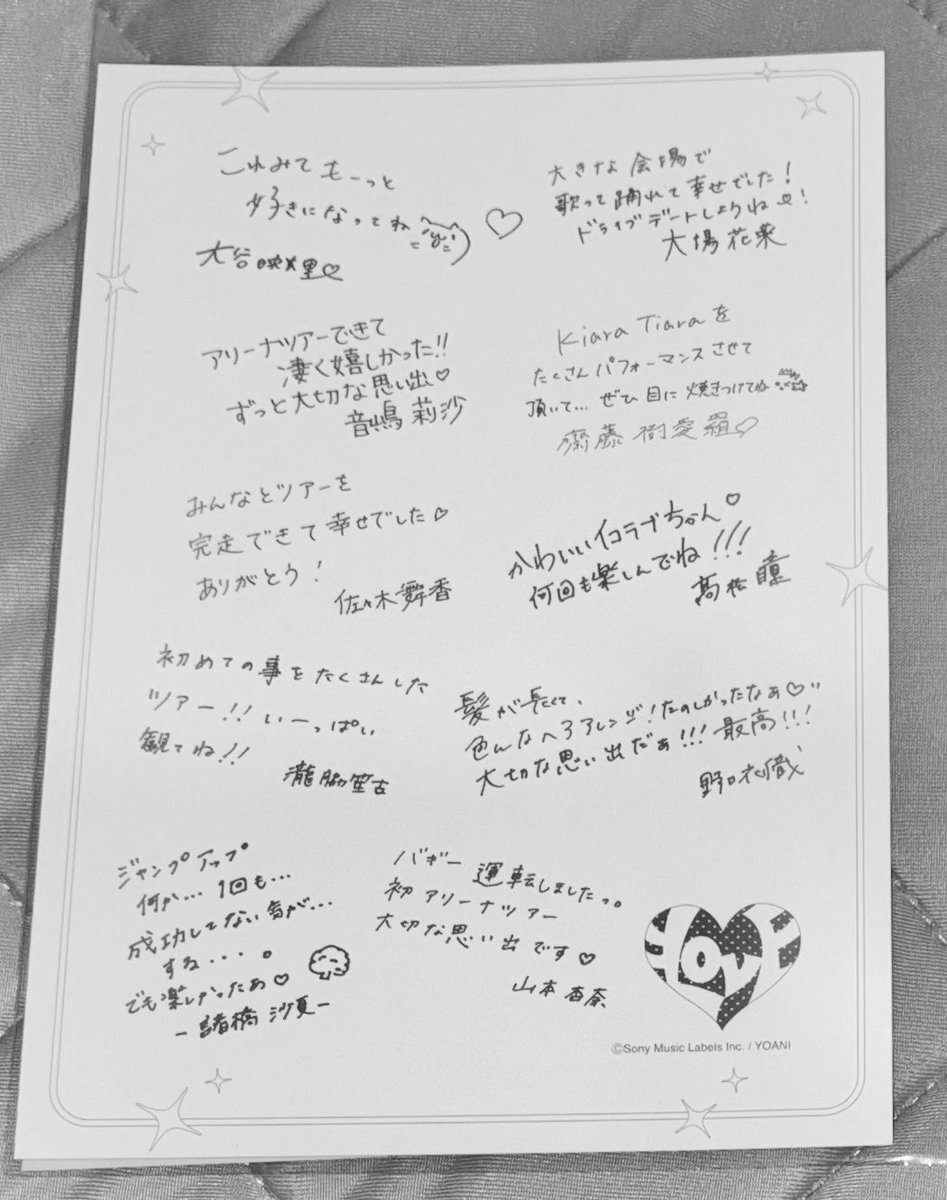 これみてもーっと
好きになってね
大谷映美里
大きな会場で
歌って踊れて幸せでした!
ドライブデートしようね!
大場花菜
アリーナツアーできて
凄く嬉しかった!!
ずっと大切な思い出♡
音嶋莉沙
Kiara Tiaraを
たくさんパフォーマンスさせて
頂いて…ぜひ目に焼きつけてね
齋藤樹愛羅♡
みんなとツアーを
完走できて幸せでした♡
ありがとう!
佐々木舞香
かわいいイコラブちゃん♡
何回も楽しんでね!!!
髙松瞳
初めての事をたくさんした
ツアー!!いーっぱい
観てね!!
瀧脇笙古
髪が長くて、
色んなヘアアレンジ!たのしかったなぁ♡
大切な思い出だぁ!!!最高!!!
野口衣織
ジャンプアップ
何か…1回も…
成功してない気が…
する・・・。
でも楽しかったぁ♡
-諸橋沙夏-
バギー運転しましたっ。
初アリーナツアー
大切な思い出です♡
山本杏奈
LOVE
©Sony Music Labels Inc. / YOANI